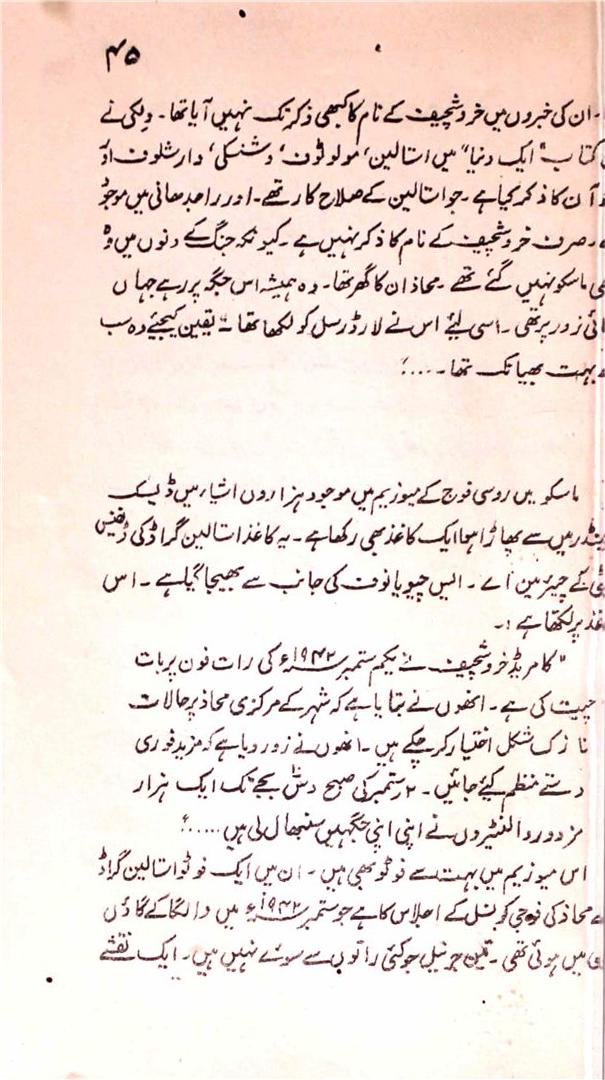 ۴۵
ان کی خبروں میں خروشچیف کے نام کا کبھی ذکر تک نہیں آیا تھا۔ ولکی نے
کتاب "ایک دنیا" میں استالین، مولوٹون، وشنکی، دارشلوف اور
ان کا ذکر کیا ہے۔ جو استالین کے صلاح کار تھے۔ اور راجدھانی میں موجود
۔ صرف خروشچیف کے نام کا ذکر نہیں ہے۔ کیونکہ جنگ کے دنوں میں وہ
ماسکو نہیں گئے تھے۔ محاذ ان کا گھر تھا۔ وہ ہمیشہ اس جگہ پر رہے جہاں
زور پر تھی۔ اسی لیئے اس نے لارڈ رسل کو لکھا تھا۔ "یقین کیجیئے وہ سب
بہت بھیانک تھا۔....“
ماسکو میں روسی فوج کے میوزیم میں موجود ہزاروں اشیاء میں ڈیسک
میں سے پھاڑا ہوا ایک کاغذ بھی رکھا ہے۔ یہ کاغذ استالین گراڈ کی ڈفنیس
کے چیئرمین اے۔ ایس چیویانوف کی جانب سے بھیجا گیا ہے۔ اس
پر لکھا ہے :۔
"کامریڈ خروشچیف نے یکم ستمبر ۱۹۴۲ء کی رات فون پر بات
چیت کی ہے۔ انھوں نے بتایا ہے کہ شہر کے مرکزی محاذ پر حالات
نازک شکل اختیار کر چکے ہیں۔ انھوں نے زور دیا ہے کہ مزید فوری
دستے منظم کیئے جائیں۔ ۲ ستمبر کی صبح دس بجے تک ایک ہزار
مزدور والنٹیروں نے اپنی اپنی جگہیں سنبھال لی ہیں.....“
اس میوزیم میں بہت سے فوٹو بھی ہیں۔ ان میں ایک فوٹو استالین گراڈ
محاذ کی فوجی کونسل کے اجلاس کا ہے جو ستمبر ۱۹۴۲ء میں والگا کے گاؤں
میں ہوئی تھی۔ تین جرنیل جو کئی راتوں سے سوئے نہیں ہیں۔ ایک نقشے